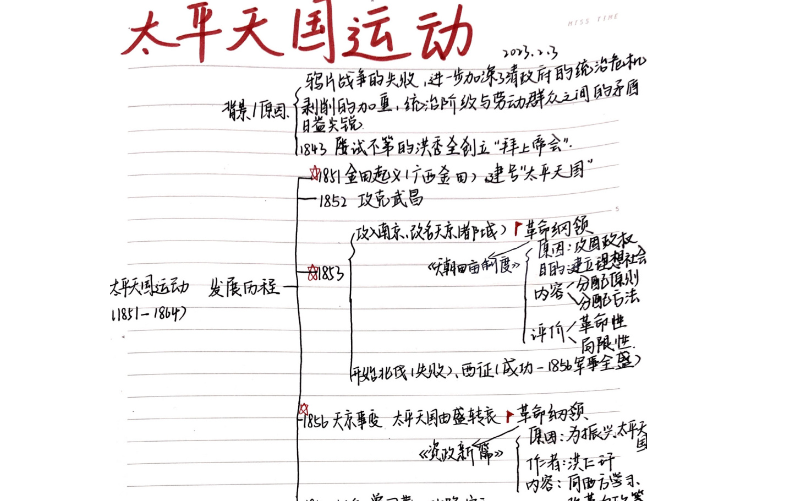 太平天国运动
MISS TIME
2023.2.3
背景/原因
鸦片战争的失败，进一步加深了清政府的统治危机
剥削的加重，统治阶级与劳动群众之间的矛盾
日益尖锐
1843 屡试不第的洪秀全创立"拜上帝会".
1851 金田起义(广西金田)，建号"太平天国"
1852 攻克武昌
太平天国运动
(1851-1864)
发展历程
1853
攻入南京、改名天京(都城)
革命纲领
《天朝田亩制度》
原因：巩固政权
目的：建立理想社会
内容
分配原则
分配方法
评价
革命性
局限性.
开始北伐(失败)、西征(成功-1856军事全盛)
1856 天京事变 太平天国由盛转衰
革命纲领
《资政新篇》
原因：为振兴太平天国
作者：洪仁玕
内容：向西方学习、